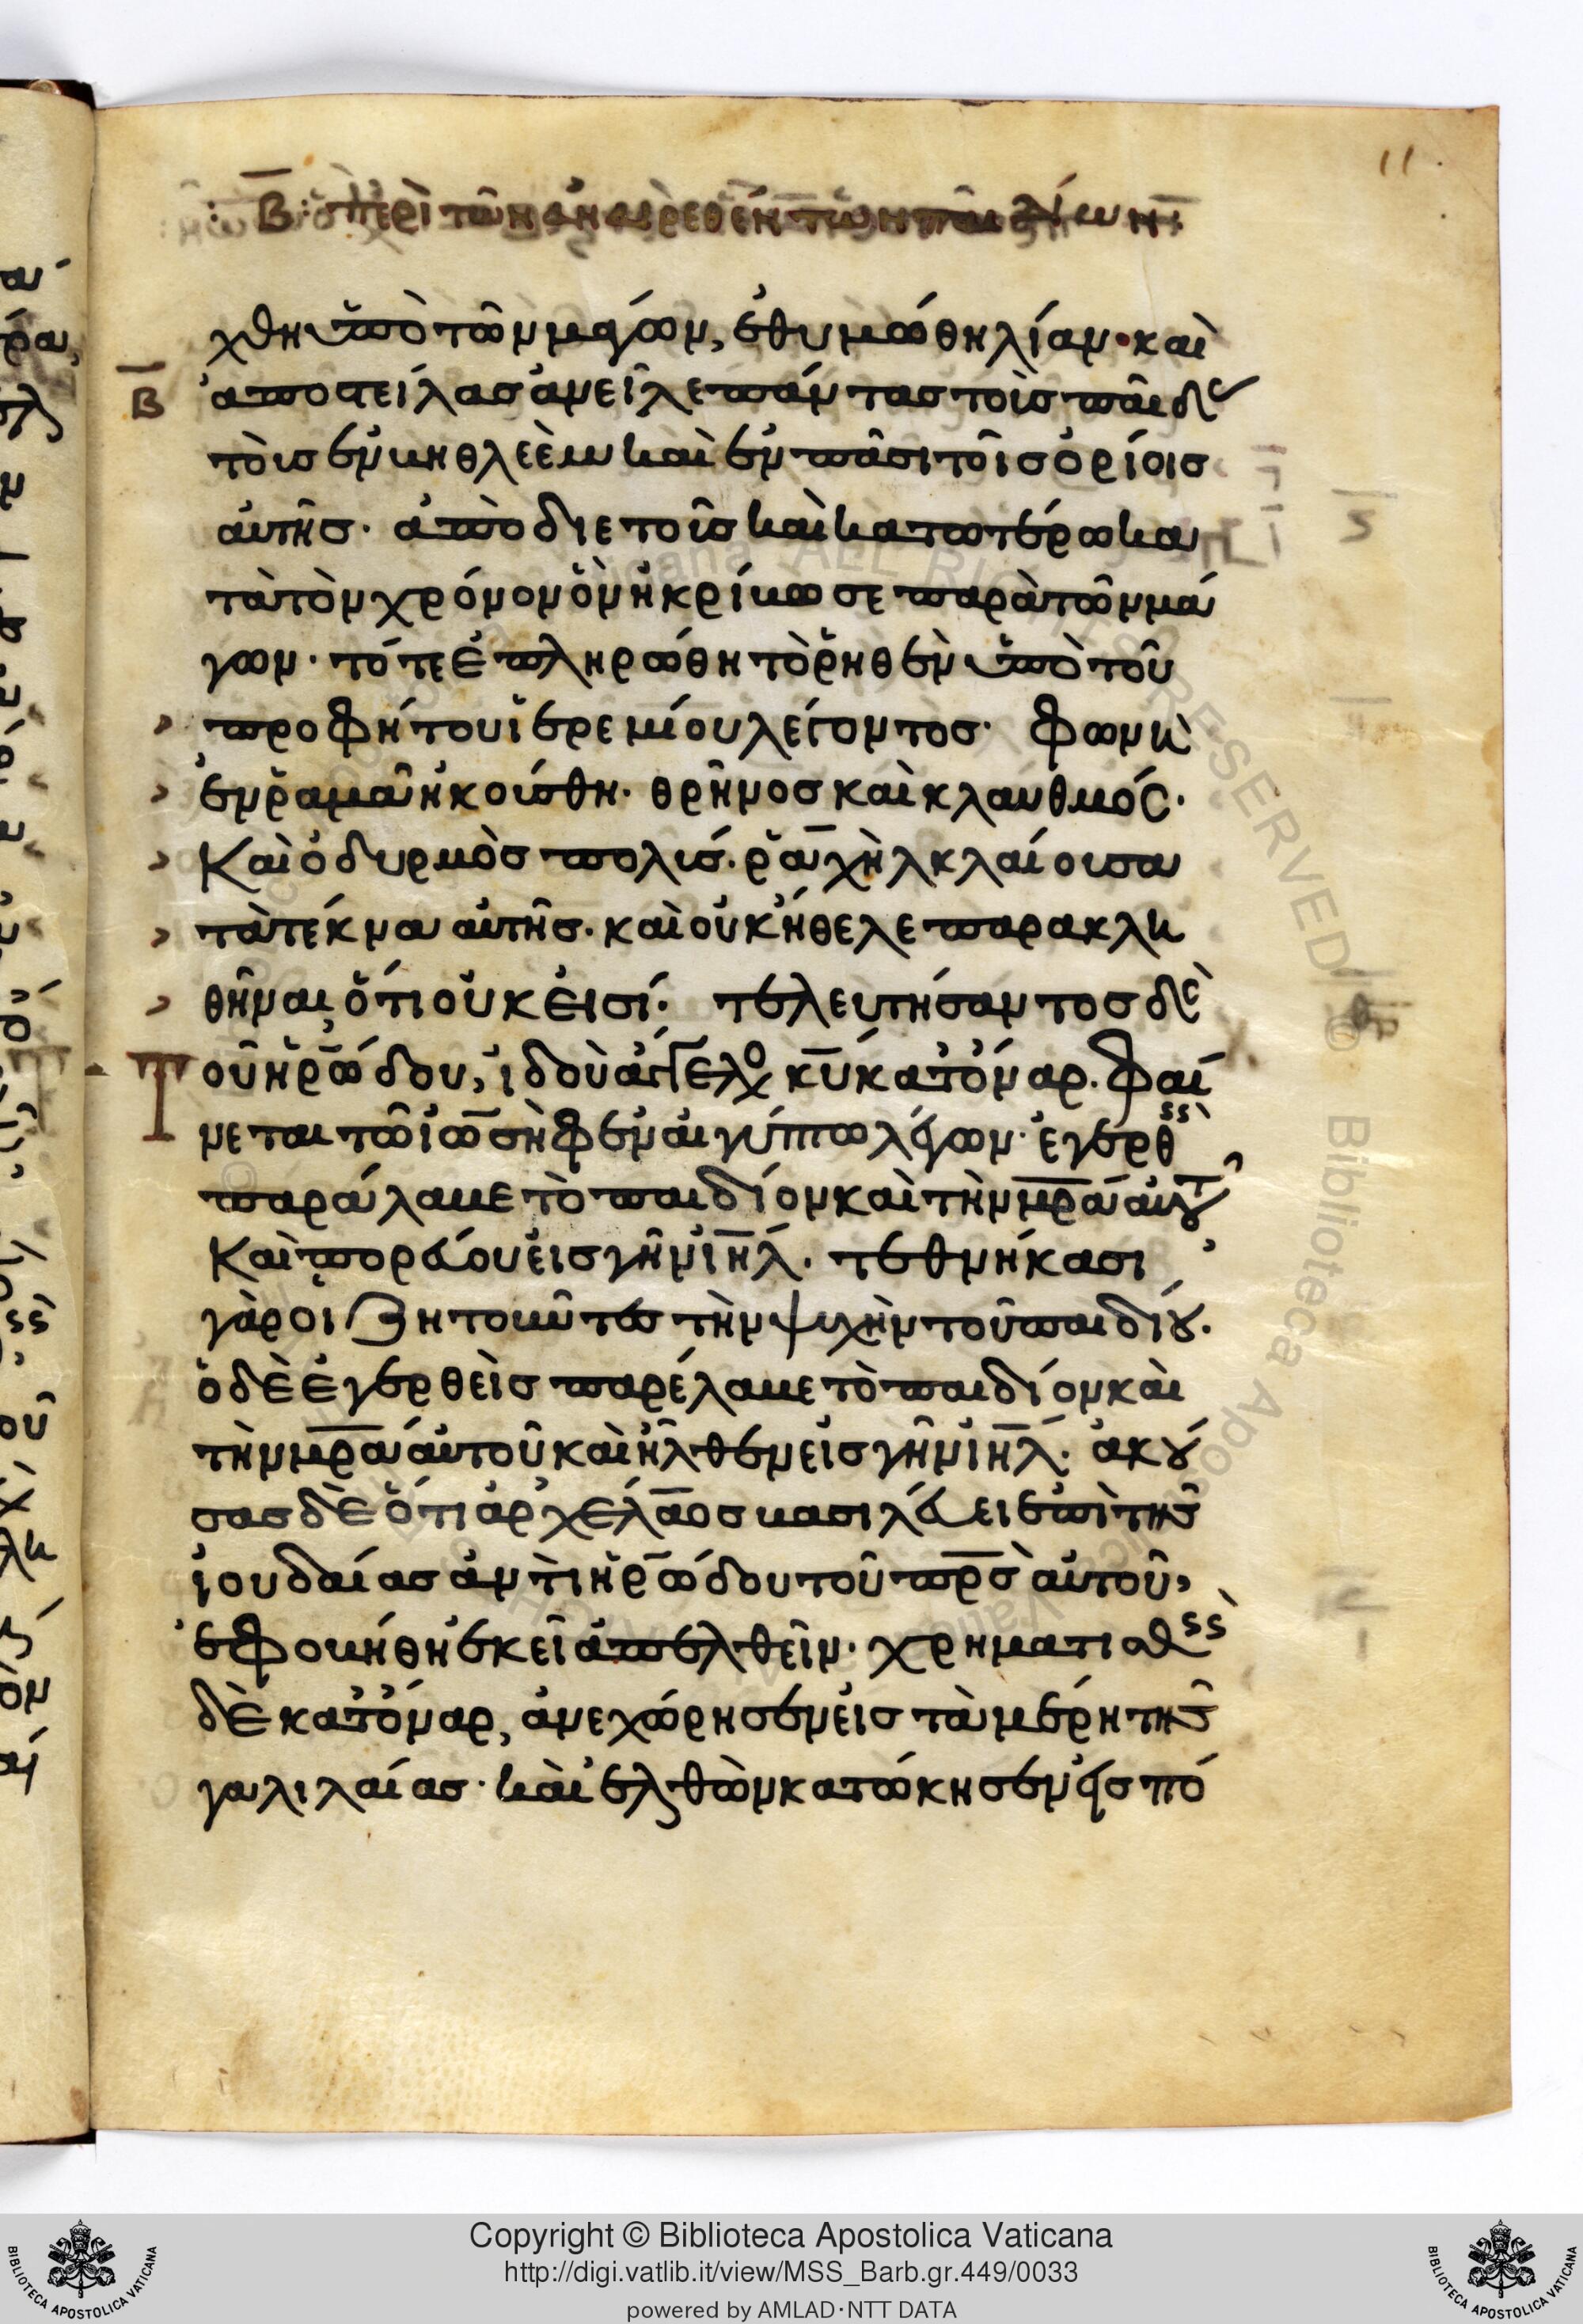 11
Β: περὶ τῶν ἀναιρεθέντων παιδίων:
χθη ὑπὸ τῶν μάγων, ἐθυμώθη λίαν· καὶ
Β ἀποστείλας ἀνεῖλε πάντας τοὺς παῖδ
τοὺς ἐν βηθλεὲμ καὶ ἐν πᾶσι τοῖς ὁρίοις
αὐτῆς· ἀπὸ διετοῦς καὶ κατωτέρω κα
τὰ τὸν χρόνον ὃν ἠκρίβωσε παρὰ τῶν μά
γων· τότε ἐπληρώθη τὸ ῥηθὲν ὑπὸ τοῦ
προφήτου ἱερεμίου λέγοντος· φωνὴ
ἐν ῥαμᾶ ἠκούσθη· θρῆνος καὶ κλαυθμός·
Καὶ ὀδυρμὸς πολύς· ῥαχὴλ κλαίουσα
τὰ τέκνα αὐτῆς· καὶ οὐκ ἤθελε παρακλη
θῆναι, ὅτι οὐκ εἰσί· τελευτήσαντος δὲ
Τ οῦ ἡρώδου, ἰδοὺ ἄγγελο κυ κατ' ὄναρ· φαί
νεται τῶ ἰωσὴφ ἐν αἰγύπτω λέγων· ἐγερθ
παράλαβε τὸ παιδίον καὶ τὴν μρα αὐτ
Καὶ πορεύου εἰς γῆν ιηλ· τεθνήκασι
γὰρ οἱ ζητοῦντες τὴν ψυχὴν τοῦ παιδίου·
ὁ δὲ ἐγερθεὶς παρέλαβε τὸ παιδίον καὶ
τὴν μρα αὐτοῦ καὶ ἦλθεν εἰς γῆν ιηλ· ἀκού
σας δὲ ὅτι ἀρχέλαος βασιλεύει ἐπὶ τῆς
ἰουδαίας ἀντὶ ἡρώδου τοῦ πρς αὐτοῦ,
ἐφοβήθη ἐκεῖ ἀπελθεῖν· χρηματισθεὶς
δὲ κατ' ὄναρ, ἀνεχώρησεν εἰς τὰ μέρη τῆς
γαλιλαίας· καὶ ἐλθὼν κατώκησεν εἰς πό
Copyright © Biblioteca Apostolica Vaticana
http://digi.vatlib.it/view/MSS_Barb.gr.449/0033
powered by AMLAD·NTT DATA